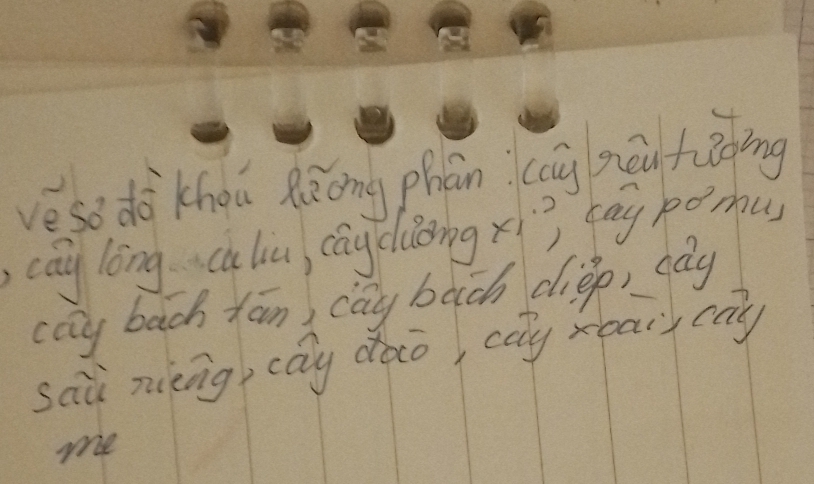 vẽ sơ đồ khoá lưỡng phân : cây rêu tường
, cây lông cu li, cây dương xỉ, cây pơ mu,
cây bách tán, cây bách diệp, cây
sầu riêng, cây đào, cây xoài, cây
me